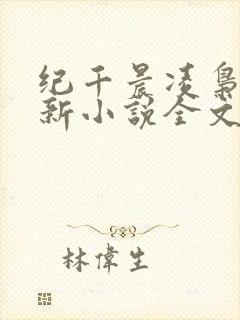 纪千晨凌枭
新小說全文
林偉生